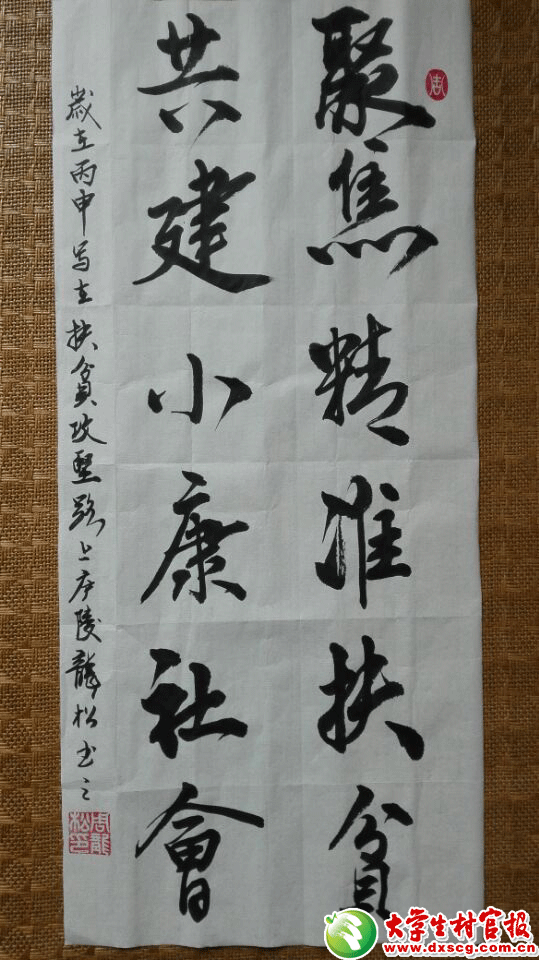 聚焦精准扶贫
共建小康社會
歲在丙申写在扶貧攻坚路上庐陵龍松书之
周
周龍松印
大学生村官报
www.dxscg.com.cn